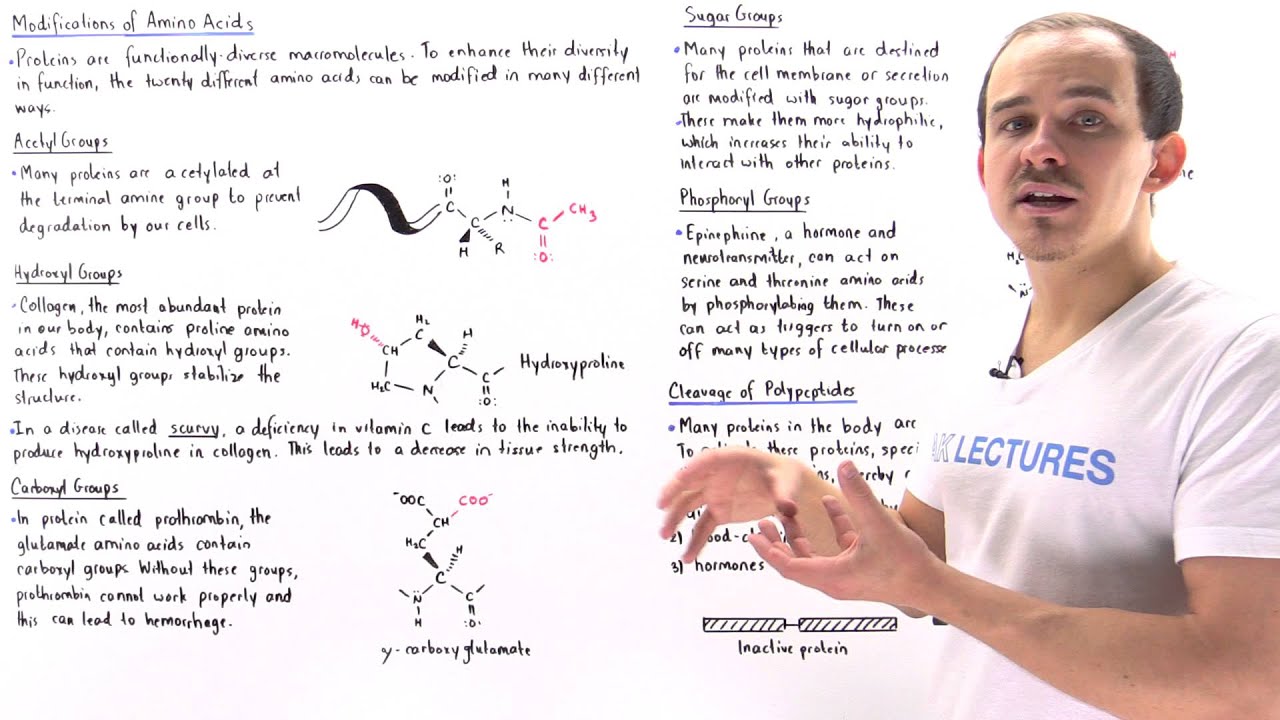 Modifications of Amino Acids
• Proteins are functionally-diverse macromolecules. To enhance their diversity
in function, the twenty different amino acids can be modified in many different
ways.
Acetyl Groups
• Many proteins are acetylated at
the terminal amine group to prevent
degradation by our cells.
:O:
C
C
H
R
H
N
C
CH3
:O:
Hydroxyl Groups
• Collagen, the most abundant protein
in our body, contains proline amino
acids that contain hydroxyl groups.
These hydroxyl groups stabilize the
structure.
HO
H2
C
CH
H2C
N
C
H
C
:O:
Hydroxyproline
• In a disease called scurvy, a deficiency in vitamin C leads to the inability to
produce hydroxyproline in collagen. This leads to a decrease in tissue strength.
Carboxyl Groups
• In protein called prothrombin, the
glutamate amino acids contain
carboxyl groups. Without these groups,
prothrombin cannot work properly and
this can lead to hemorrhage.
-OOC
COO-
CH
H2C
H
C
N
H
C
:O:
γ-carboxyglutamate
Sugar Groups
• Many proteins that are destined
for the cell membrane or secretion
are modified with sugar groups.
• These make them more hydrophilic,
which increases their ability to
interact with other proteins.
Phosphoryl Groups
• Epinephrine, a hormone and
neurotransmitter, can act on
serine and threonine amino acids
by phosphorylating them. These
can act as triggers to turn on or
off many types of cellular processe
H2C
N
Cleavage of Polypeptides
• Many proteins in the body are
To these proteins, speci
hereby
2)
3) hormones
Inactive protein
AK LECTURES